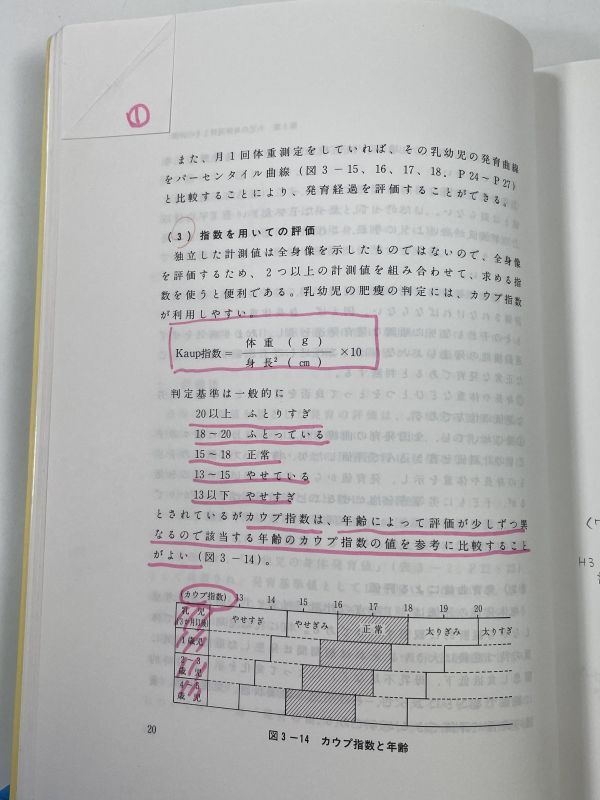 ①
また、月1回体重測定をしていれば、その乳幼児の発育曲線
をパーセンタイル曲線（図3－15、16、17、18．P24～P27）
と比較することにより、発育経過を評価することができる。
(3) 指数を用いての評価
独立した計測値は全身像を示したものではないので、全身像
を評価するため、2つ以上の計測値を組み合わせて、求める指
数を使うと便利である。乳幼児の肥痩の判定には、カウプ指数
が利用しやすい。
Kaup指数＝ 体重(g) / 身長²(cm) ×10
判定基準は一般的に
20以上 ふとりすぎ
18～20 ふとっている
15～18 正常
13～15 やせている
13以下 やせすぎ
とされているがカウプ指数は、年齢によって評価が少しずつ異
なるので該当する年齢のカウプ指数の値を参考に比較すること
がよい（図3－14）。
(カウプ指数) 13 14 15 16 17 18 19 20
乳児
(3か月以後)
やせすぎ やせぎみ 正常 太りぎみ 太りすぎ
1歳児
2～3
歳児
4～5
歳児
図3－14 カウプ指数と年齢
20
H3